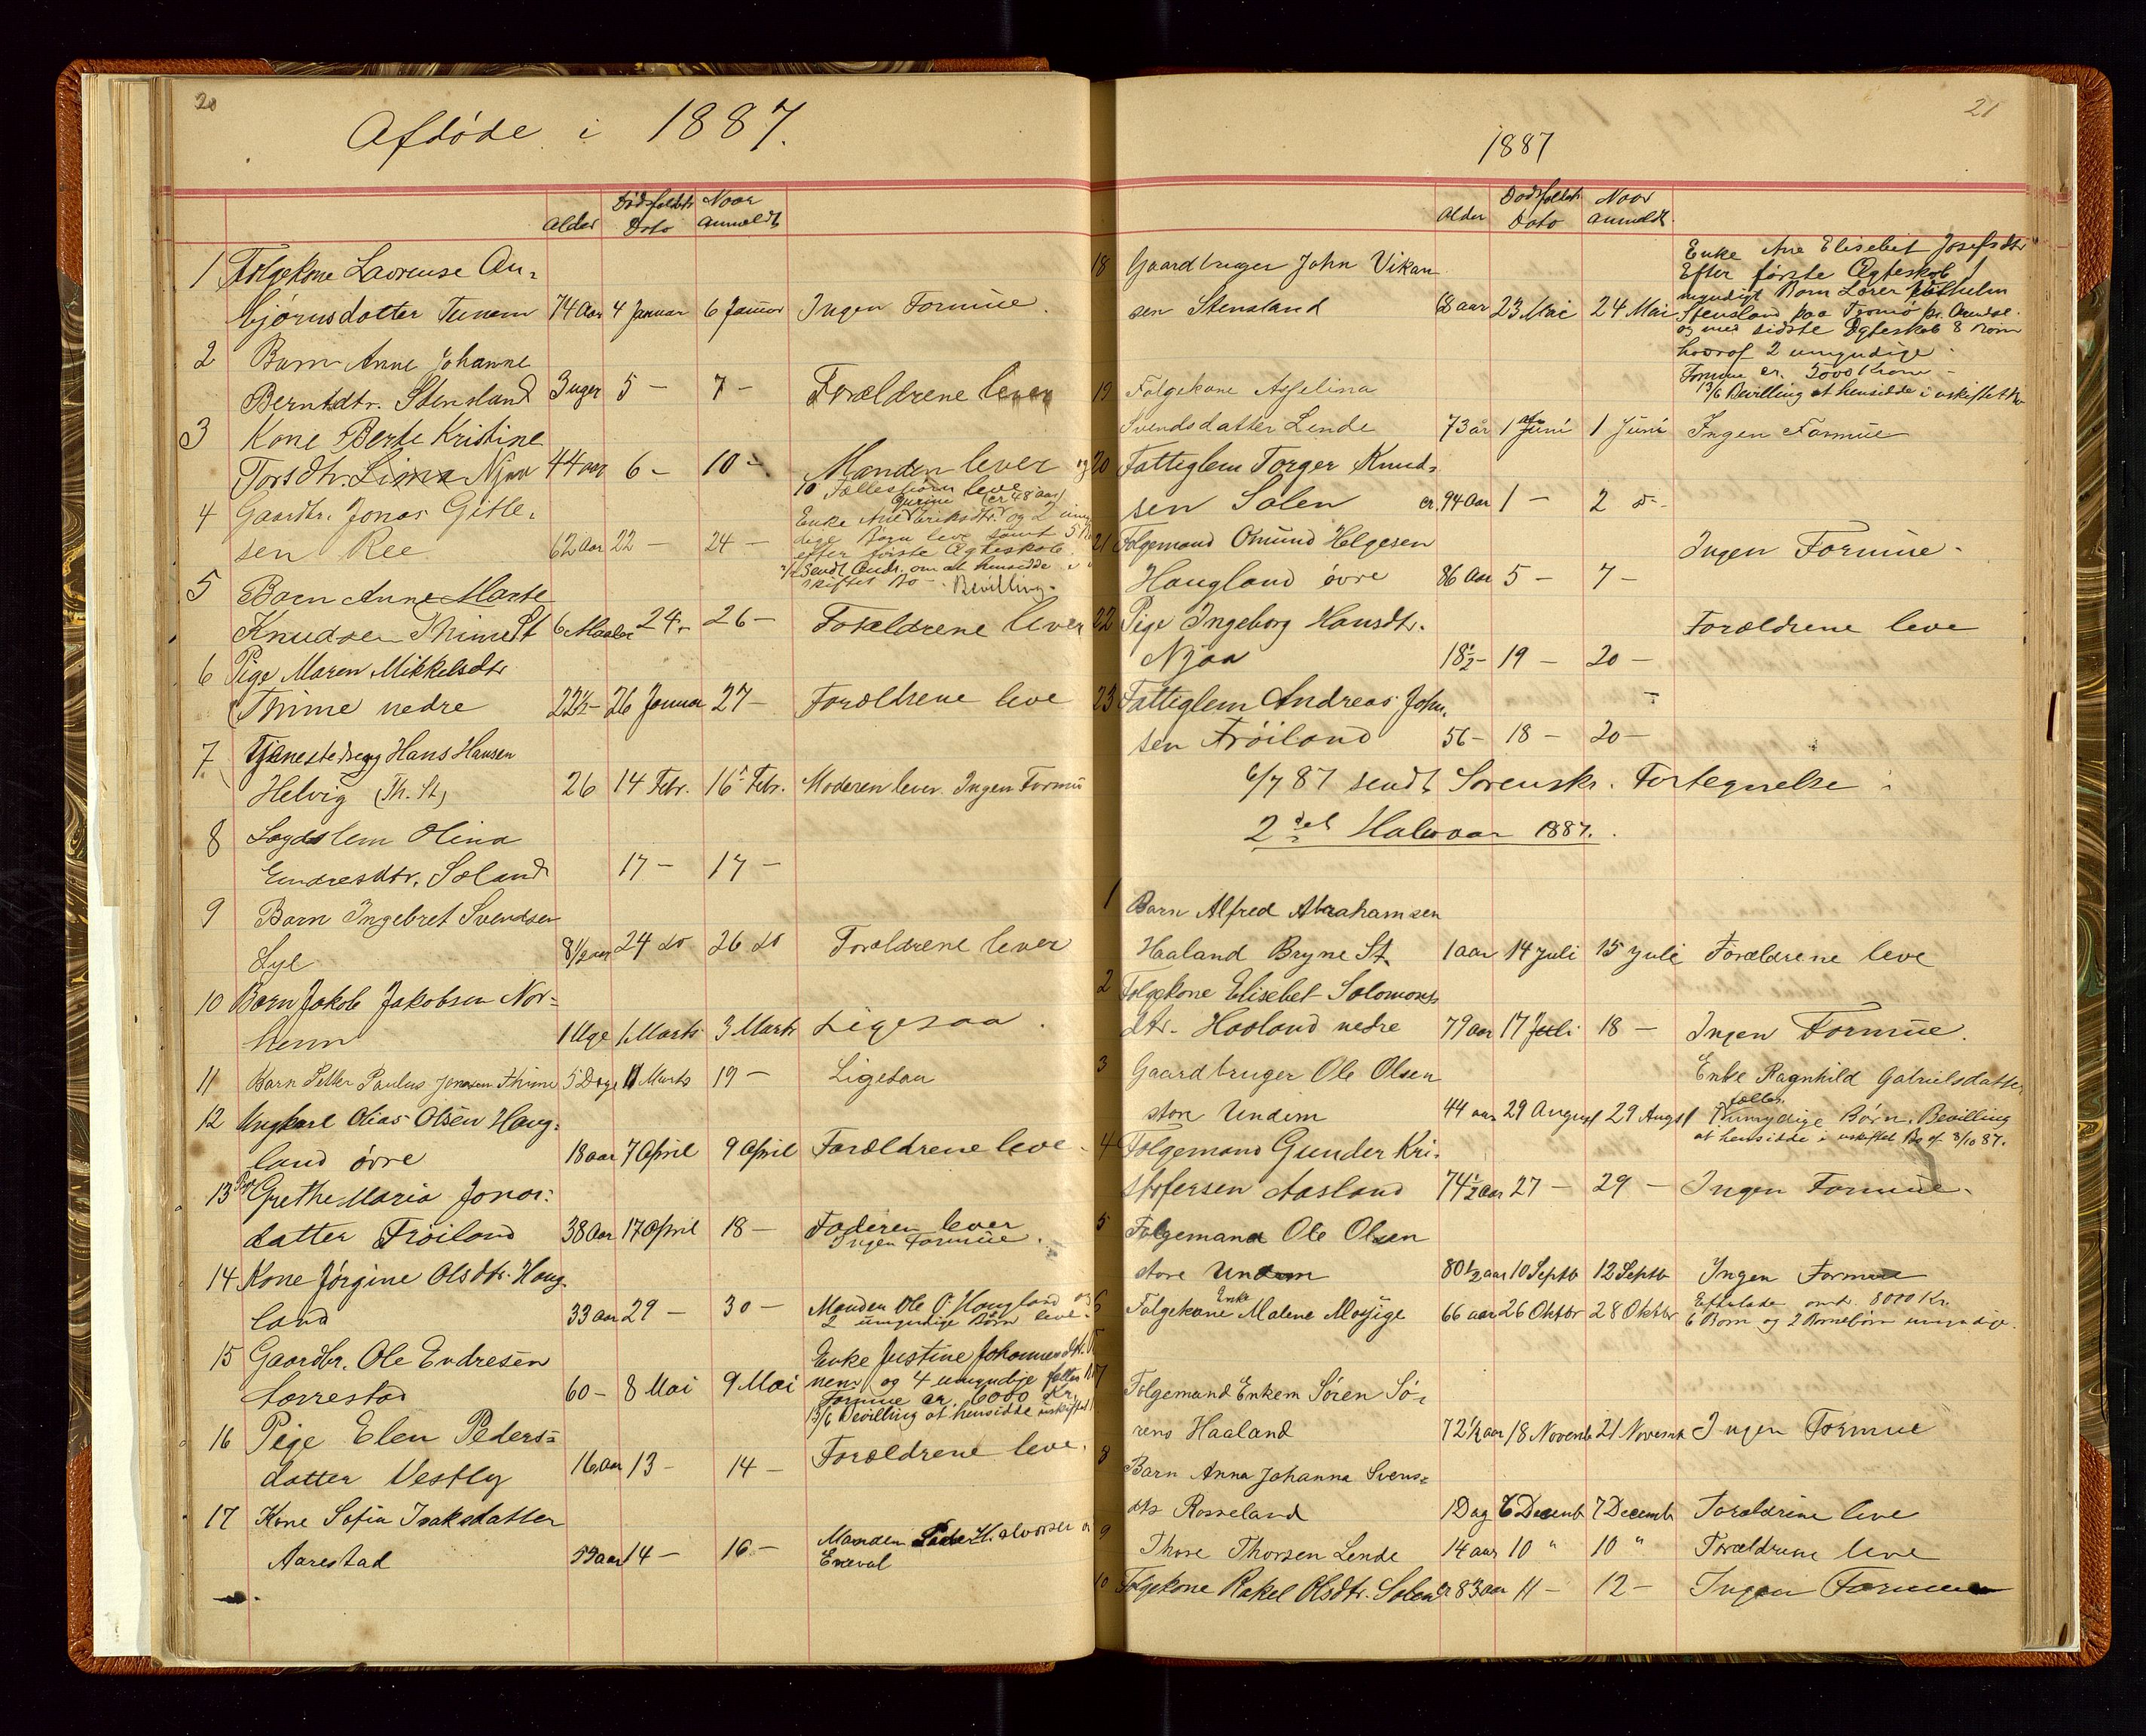 20
Afdøde i 1887.
Alder Dødsfaldets Dato Naar anmeldt
1 Følgekone Lavrense An-
bjørnsdatter Tunem 74 Aar 4 Januar 6 Januar Ingen Formue.
2 Barn Anne Johanne
Berntdtr. Stensland 3 uger 5 — 7 — Forældrene lever
3 Kone Berte Kristine
Torsdtr. Lima Njaa 44 aar 6 — 10 — Manden lever og
10 Fællesbørn leve
4 Gaardbr. Jonas Gitle-
(er 48 aar)
Enke Ane Eriksdtr. og 2 umyn
dige Børn leve samt 5
sen Ree 62 Aar 22 — 24 —
efter første Ægteskab.
Sendt Andr. om at hensidde i
skiftet Bo — . Bevilling.
5 Barn Anne Marte
Knudsen Thime St 6 Maaler 24 — 26 — Forældrene lever
6 Pige Maren Mikkelsdtr
Thime nedre 22½ — 26 Januar 27 — Forældrene leve
7 Tjenestedreng Hans Hansen
Helvig (Th. St) 26 14 Febr. 16 Febr. Moderen lever. Ingen Formu
8 Lægdslem Olina
Endresdtr. Søland 17 — 17 —
9 Barn Ingebret Svendsen
Lye 8½ aar 24 do 26 do Forældrene lever
10 Barn Jakob Jakobsen Nor-
heim 1 Uge 1 Marts 3 Marts Ligesaa.
11 Barn Peder Paulus Jonasen Thime 5 Dage 11 Marts 19 — Ligesaa
12 Ungkarl Olias Olsen Haug-
land øvre 18 aar 7 April 9 April Forældrene leve —
13 Pige Grethe Maria Jonas-
datter Frøiland 38 Aar 17 April 18 — Faderen lever
Ingen Formue.
14 Kone Jørgine Olsdtr. Haug-
land 33 aar 29 — 30 — Manden Ole O. Haugland og
2 umyndige Børn leve.
15 Gaardbr. Ole Endresen
Enke Justine Johannesdtr.
Aarrestad 60 — 8 Mai 9 Mai og 4 umyndige fælles
Formue er. 6000 Kr.
13/6 Bevilling at hensidde uskiftet
16 Pige Elen Peders-
datter Vestly 16 Aar 13 — 14 — Forældrene leve.
17 Kone Sofia Isaksdatter
Aarestad 55 aar 14 — 16 — Manden Peder Halvorsen
21
1887
Alder Dødsfaldets Dato Naar anmeldt
18 Gaardbruger John Vikan
sen Stensland 68 aar 23 Mai 24 Mai
Enke Ane Elisebet Josefsdtr
Efter første Ægteskab 1
myndigt Barn Lærer Vilhelm
Stensland paa Tromø pr. Arendal.
og med sidste Ægteskab 8 Børn
hvoraf 2 umyndige.
Formue er. 5000 Kroner —
13/6 Bevilling at hensidde i uskiftet Bo
19 Følgekone Asselina
Svendsdatter Lende 73 år 1 Juni 1 Juni Ingen Formue
20 Fattiglem Torger Knud-
sen Solen cr. 94 Aar 1 — 2 d —
21 Følgemand Omund Helgesen
Ingen Formue.
Haugland øvre 86 Aar 5 — 7 —
22 Pige Ingeborg Hansdtr.
Forældrene leve
Njaa 18½ — 19 — 20 —
23 Fattiglem Andreas John-
sen Frøiland 56 — 18 — 20 —
6/7 87 sendt Sorenskr. Fortegnelse
2det Halvaar 1887.
1 Barn Alfred Abrahamsen
Haaland Bryne St. 1 aar 14 Juli 15 Juli Forældrene leve
2 Følgekone Elisebet Solomons
dtr. Haaland nedre 79 aar 17 Juli 18 — Ingen Formue.
3 Gaardbruger Ole Olsen
Enke Ragnhild Gabrielsdatter
store Undem 44 aar 29 August 29 Augst fælles umyndige Børn. Bevilling
at hensidde i uskiftet Bo af 3/10 87.
4 Følgemand Gunder Kri-
stofersen Aasland 74½ aar 27 — 29 — Ingen Formue.
5 Følgemand Ole Olsen
store Undem 80½ aar 10 Septb 12 Septb Ingen Formue
6 Følgekone Enke Malene Mossige 66 aar 26 Oktbr 28 Oktbr
Efterlade omtr. 8000 Kr.
6 Børn og 2 Børnebørn umyndige.
7 Følgemand Enkem Søren Sø-
rens Haaland 72½ aar 18 Novemb 21 Novemb Ingen Formue
8 Barn Anna Johanna Svens-
dtr Rosseland 1 Dag 6 Decemb 7 Decemb Forældrene leve
9 Thore Thorsen Lende 14 aar 10 " 10 " Forældrene leve
10 Følgekone Rakel Olsdtr. Solen cr 83 aar 11 — 12 — Ingen Formue